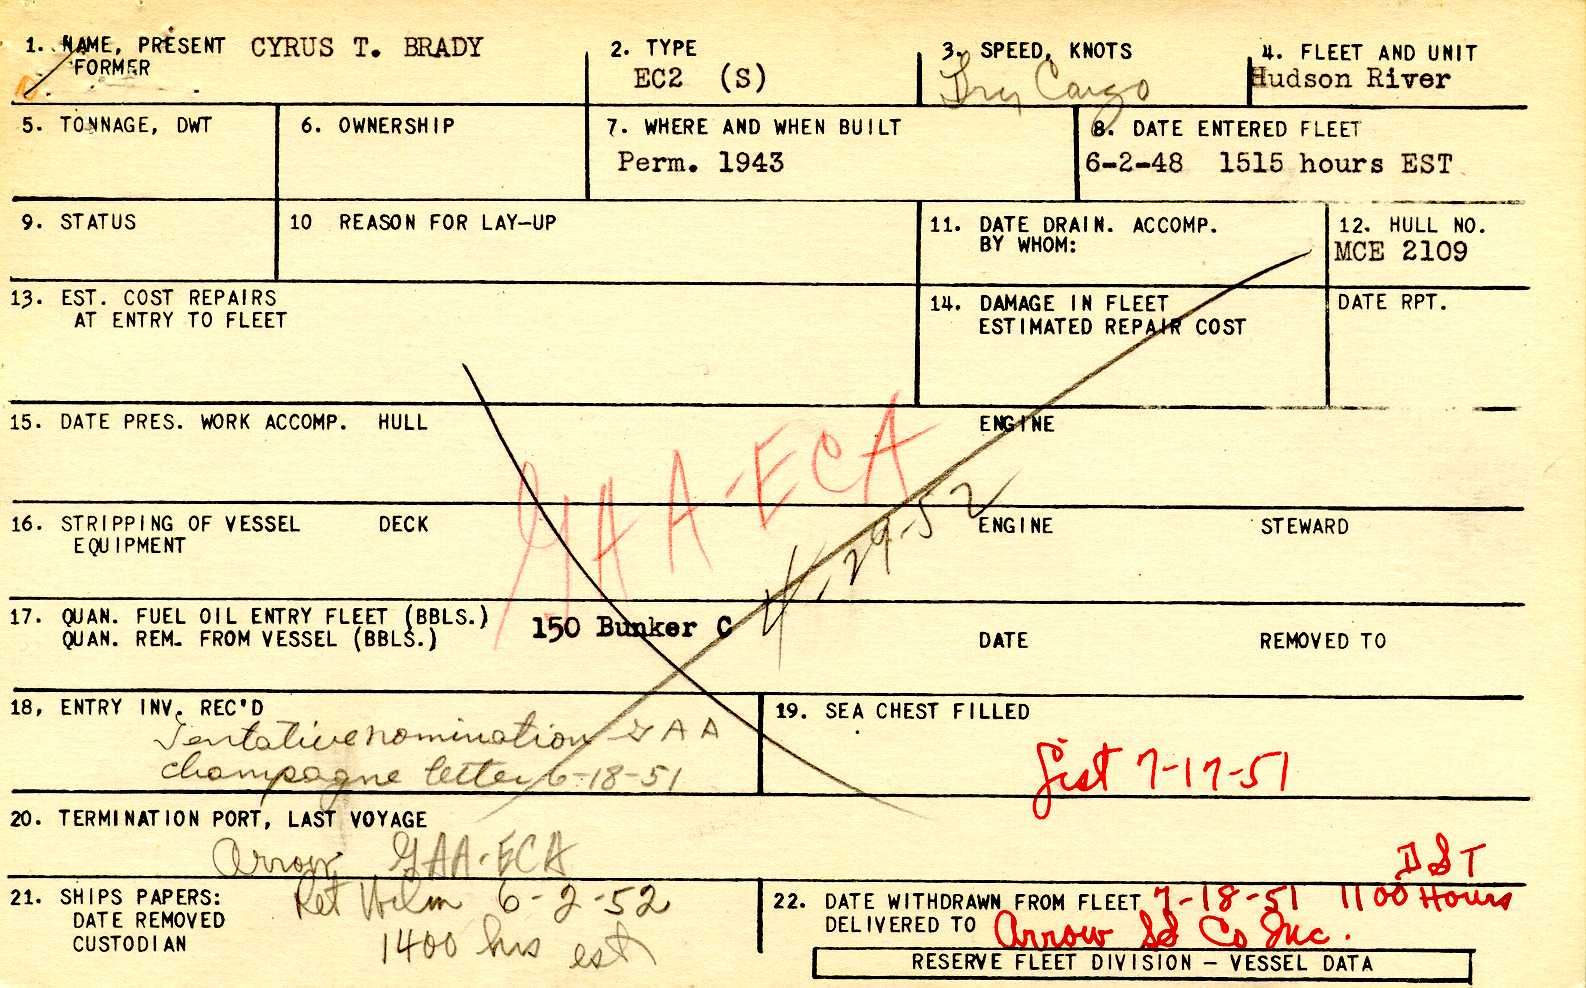 1. NAME, PRESENT CYRUS T. BRADY
FORMER
2. TYPE
EC2 (S)
3. SPEED, KNOTS
Dry Cargo
4. FLEET AND UNIT
Hudson River
5. TONNAGE, DWT
6. OWNERSHIP
7. WHERE AND WHEN BUILT
Perm. 1943
8. DATE ENTERED FLEET
6-2-48 1515 hours EST
9. STATUS
10 REASON FOR LAY-UP
11. DATE DRAIN. ACCOMP.
BY WHOM:
12. HULL NO.
MCE 2109
13. EST. COST REPAIRS
AT ENTRY TO FLEET
14. DAMAGE IN FLEET
ESTIMATED REPAIR COST
DATE RPT.
15. DATE PRES. WORK ACCOMP. HULL
ENGINE
GAA-ECA
4-29-52
16. STRIPPING OF VESSEL DECK ENGINE STEWARD
EQUIPMENT
17. QUAN. FUEL OIL ENTRY FLEET (BBLS.)
150 Bunker C
QUAN. REM. FROM VESSEL (BBLS.) DATE REMOVED TO
18, ENTRY INV. REC'D
Tentative nomination GAA
champagne letter 6-18-51
19. SEA CHEST FILLED
List 7-17-51
20. TERMINATION PORT, LAST VOYAGE
Arrow GAA-ECA
DST
21. SHIPS PAPERS:
DATE REMOVED
CUSTODIAN
Ret Wilm 6-2-52
1400 hrs est
22. DATE WITHDRAWN FROM FLEET 7-18-51 1100 Hours
DELIVERED TO Arrow SS Co Inc.
RESERVE FLEET DIVISION – VESSEL DATA